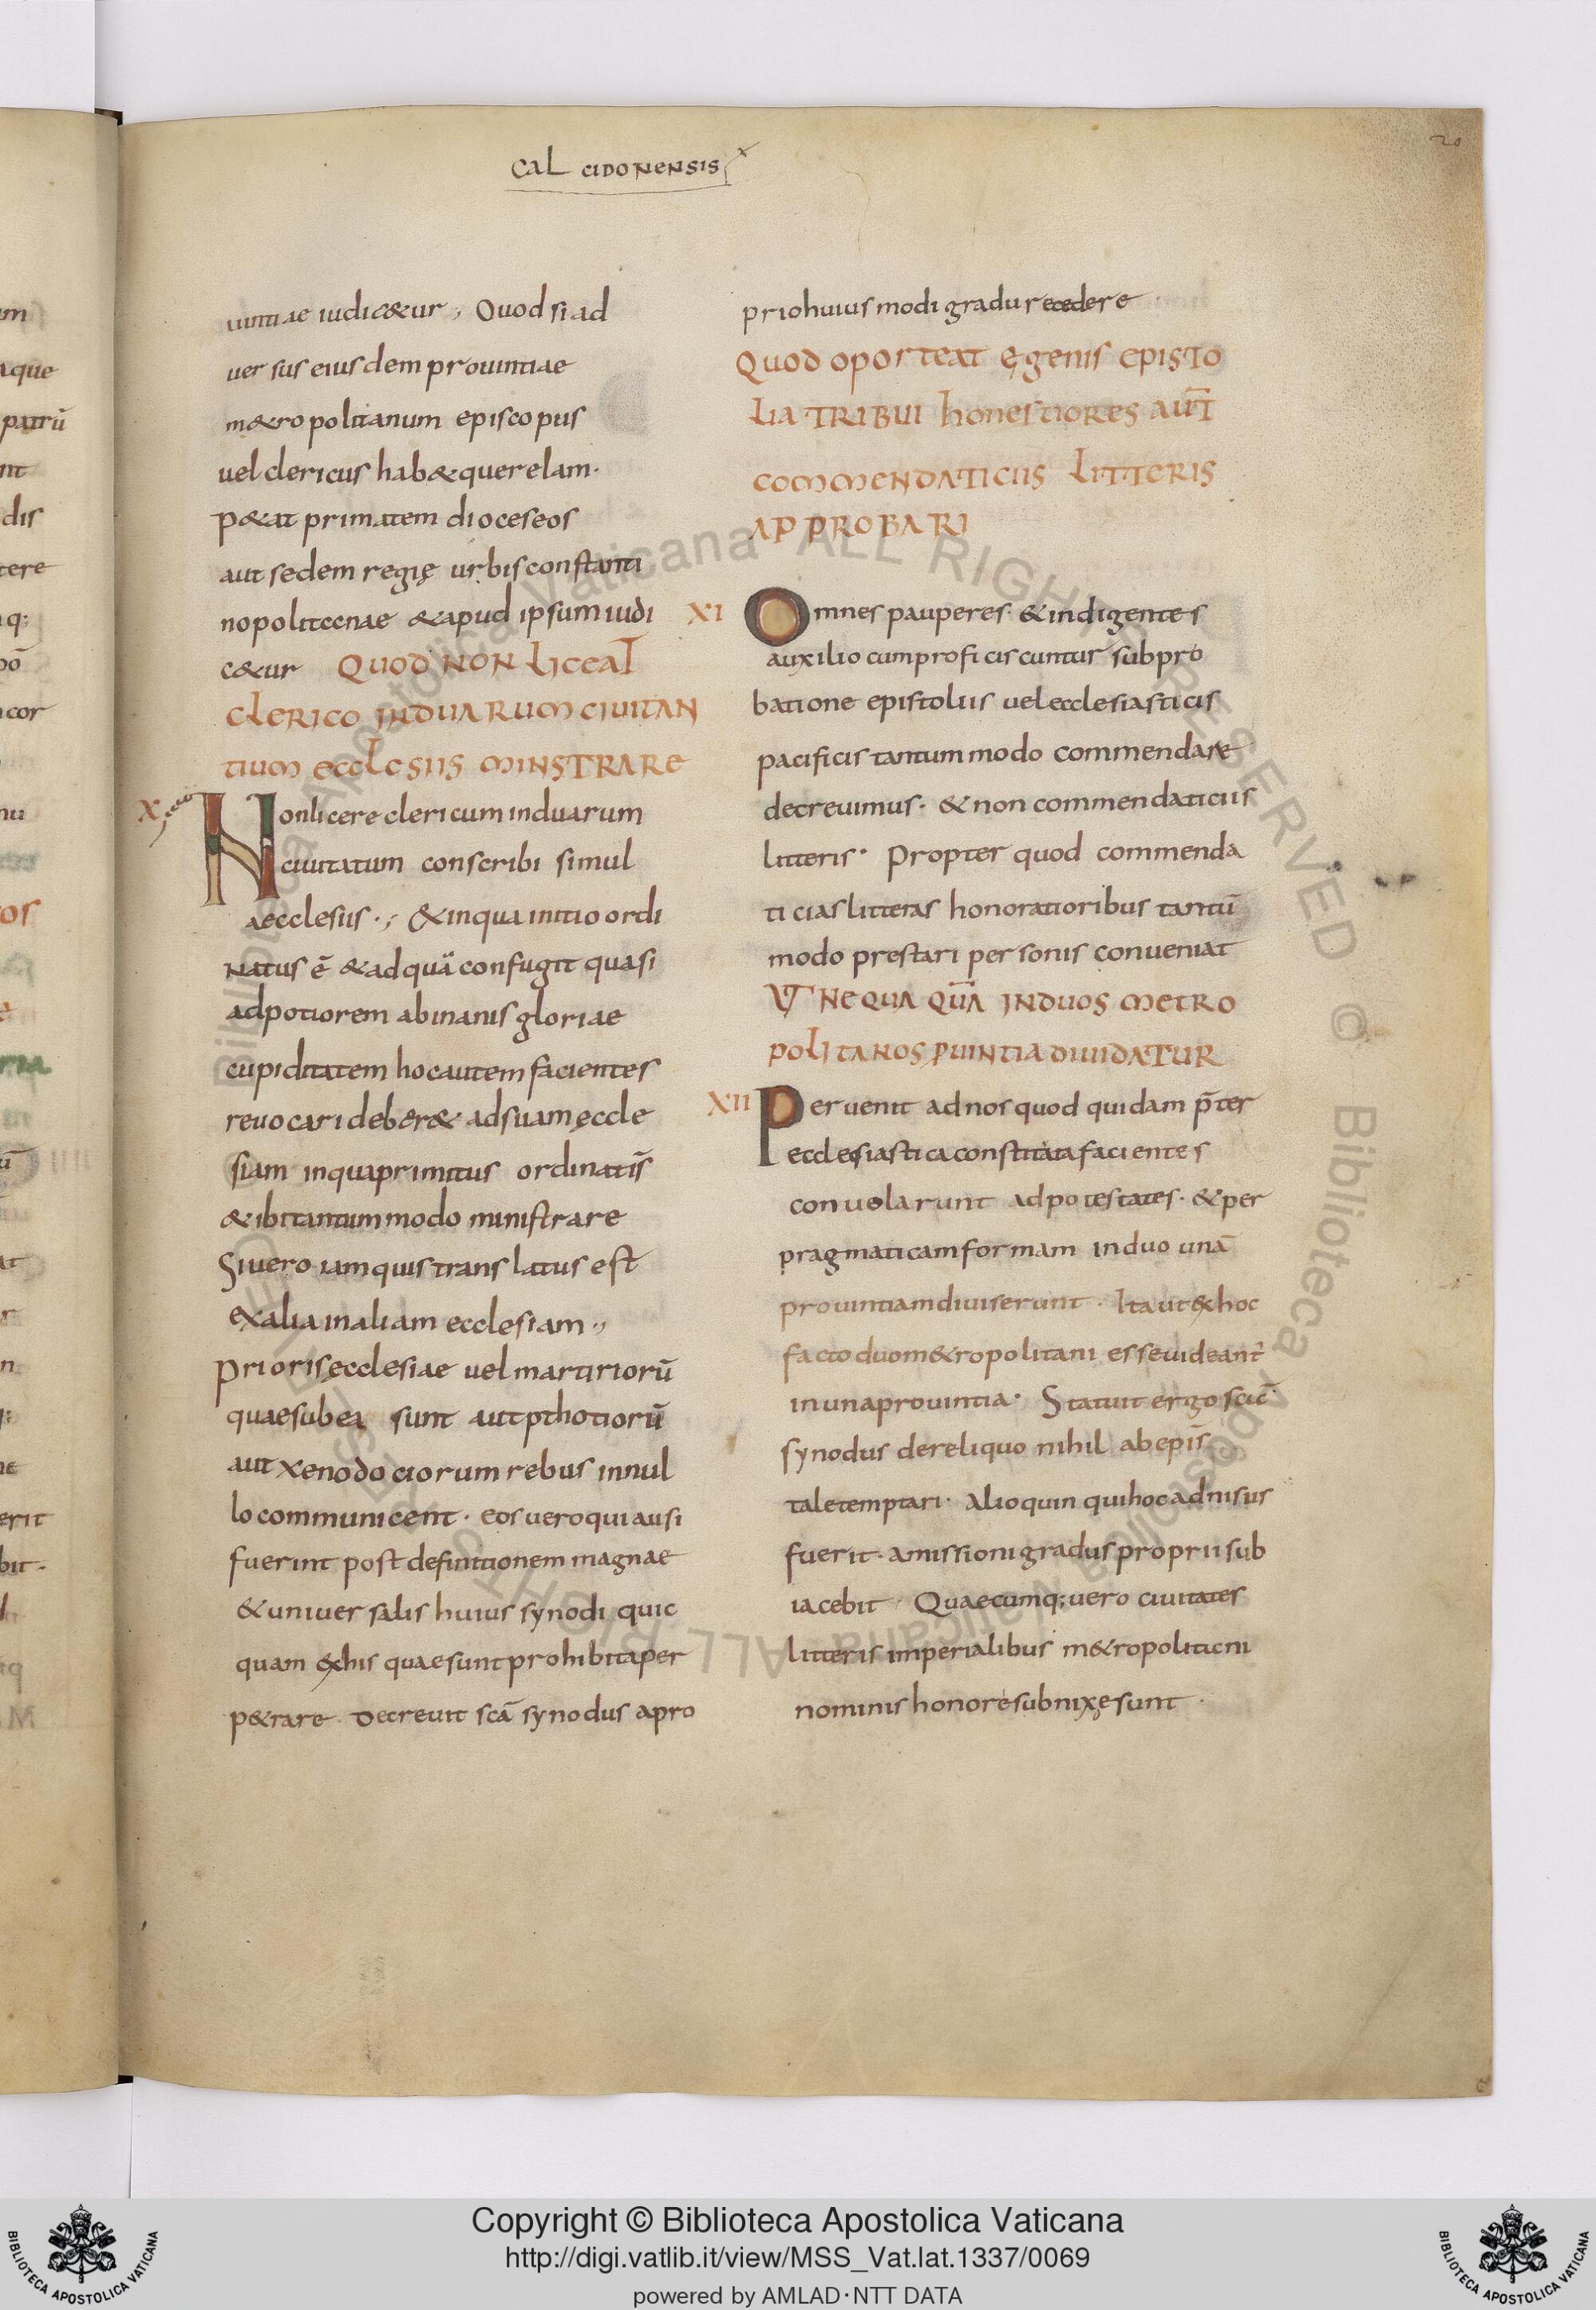 CALCIDONENSIS
20
uintiae iudic&ur, Quod si ad
uersus eiusdem prouintiae
m&ropolitanum episcopus
uel clericus hab& querelam.
P&at primatem dioceseos
aut sedem regię urbis constanti
nopolitccnae & apud ipsum iudi
c&ur QUOD NON LICEAT
CLERICO IN DUARUM CIUITAN
TIUM ECCLESIIS MINSTRARE
X Non licere clericum in duarum
ciuitatum conscribi simul
aecclesiis., & in qua initio ordi
natus ē & ad quā confugit quasi
ad potiorem ab inanis gloriae
cupiditatem hoc autem facientes
reuocari deber& ad suam ęccle
siam in qua primitus ordinatis̄
& ibi tantum modo ministrare
Si uero iam quis translatus est
ex alia in aliam ecclesiam.,
Prioris ęcclesiae uel martiriorū
quae sub ea sunt aut pthotiorū
aut xenodociorum rebus in nul
lo communicent. eos uero qui ausi
fuerint post definitionem magnae
& uniuersalis huius synodi quic
quam ex his quae sunt prohibita per
p&rare. Decreuit scā synodus a pro
prio huiusmodi gradu recedere
QUOD OPORTEAT ĘGENIS EPISTO
LIA TRIBUI HONESTIORES AUT̄
COMMENDATICIIS LITTERIS
APPROBARI
XI Omnes pauperes. & indigentes
auxilio cum proficiscuntur sub pro
batione epistoliis uel ecclesiasticis
pacificis tantum modo commendare
decreuimus. & non commendaticiis
litteris. Propter quod commenda
ticias litteras honoratioribus tantū
modo prestari personis conueniat
UT NEQUAQUĀ IN DUOS METRO
POLITANOS PUINTIA DIUIDATUR
XII Peruenit ad nos quod quidam p̄ter
ecclesiastica constituta facientes
conuolarunt ad potestates. & per
pragmaticam formam in duo unā
prouintiam diuiserunt. Ita ut ex hoc
facto duo m&ropolitani esse uideant̄
in una prouintia. Statuit ergo scīc
synodus de reliquo nihil ab epis̄
tale temptari. Alioquin qui hoc adnisus
fuerit. amissioni gradus proprii sub
iacebit. Quaecumq; uero ciuitates
litteris imperialibus m&ropoliticni
nominis honore subnixę sunt.
um
aque
patrū
nt
dis
tere
q;
cor
nu
os
erit
bit.
Copyright © Biblioteca Apostolica Vaticana
http://digi.vatlib.it/view/MSS_Vat.lat.1337/0069
powered by AMLAD·NTT DATA
BIBLIOTECA APOSTOLICA VATICANA
BIBLIOTECA APOSTOLICA VATICANA
© Biblioteca Apostolica Vaticana ALL RIGHTS RESERVED © Biblioteca Apostolica Vaticana ALL RIGHTS RESERVED